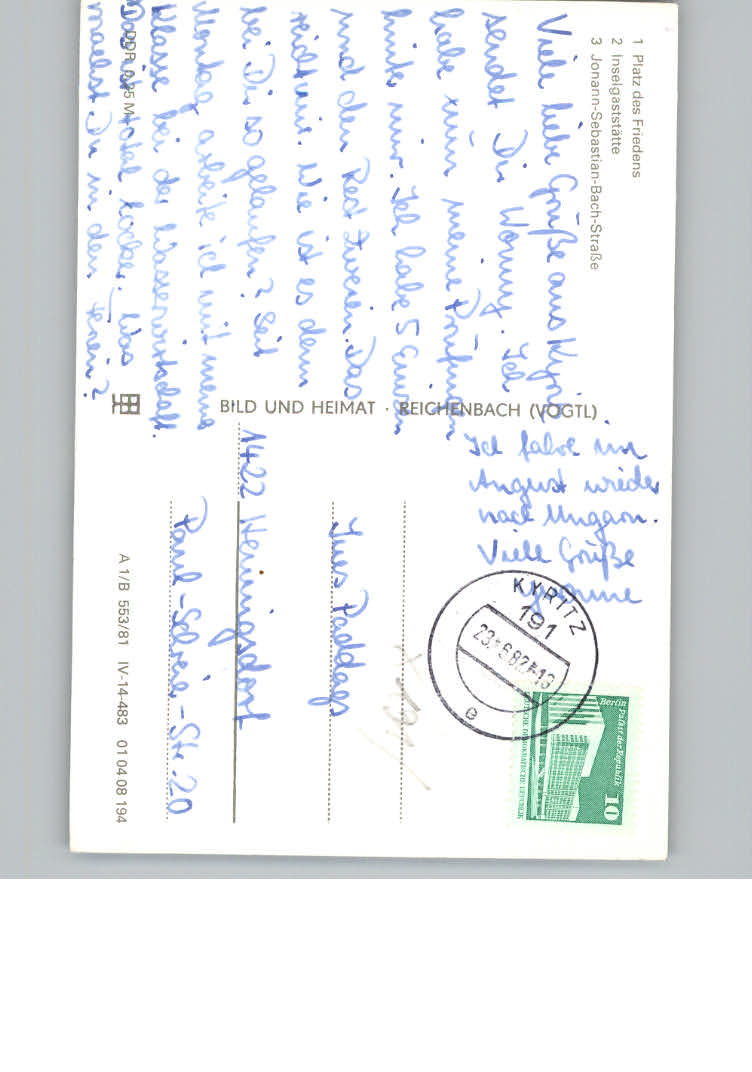 1 Platz des Friedens
2 Inselgaststätte
3 Jonann-Sebastian-Bach-Straße
Viele liebe Grüße aus Kyritz
sendet Dir Yvonny. Ich
habe nun meine Prüfungen
hinter mir. Ich habe 5 Einsen
und den Rest Zweien. Das
reicht mir. Wie ist es denn
bei Dir so gelaufen? Seit
Montag arbeite ich mit meiner
Klasse bei der Wasserwirtschaft.
Das ist total locker. Was
machst Du in den Ferien?
DDR 0,25 M
BILD UND HEIMAT · REICHENBACH (VOGTL)
Ich fahre im
August wieder
nach Ungarn.
Viele Grüße
Yvonne
KYRITZ
191
23.-6.82-18
e
Berlin
Palast der Republik
10
DEUTSCHE DEMOKRATISCHE REPUBLIK
Ines Paddags
1422 Hennigsdorf
Paul-Schreier-Str. 20
A 1/B 553/81 IV-14-483 01 04 08 194